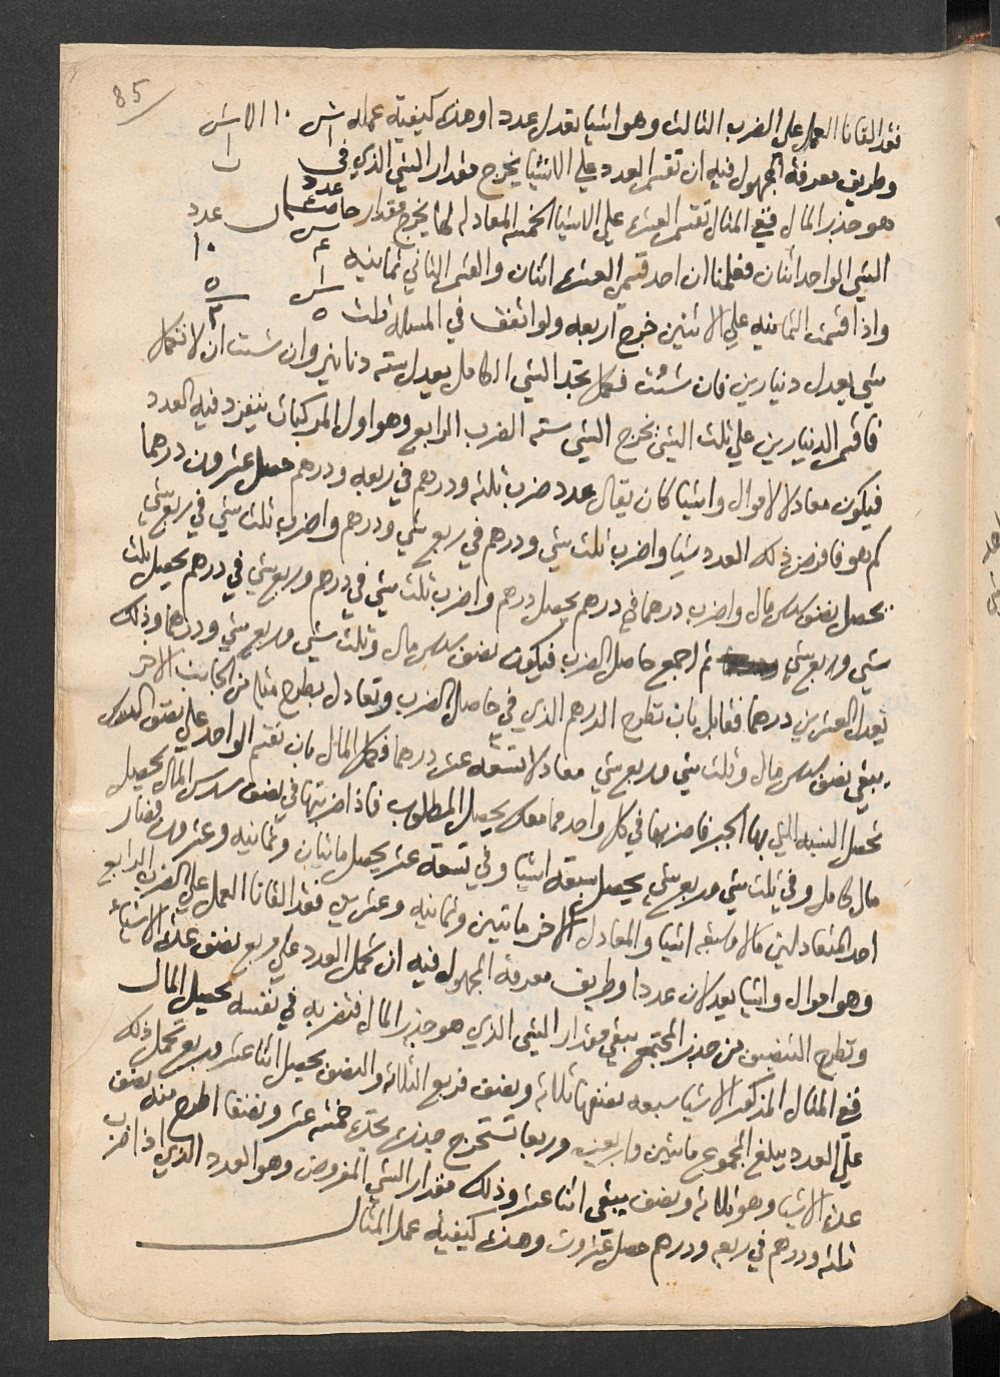 85
فقد القانا العمل على الضرب الثالث وهو اشيا تعدل عددا وهذه كيفية عمله
وطريق معرفة المجهول فيه ان تقسم العدد على الاشيا يخرج مقدار الشي الذي
هو جذر المال ففي المثال تقسم العشرة على الاشيا الخمسة المعادله لها يخرج مقدار
الشي الواحد اثنان فعلمنا ان احد قسمي العشرة اثنان والقسم الثاني ثمانيه
واذا قسمت الثمانيه على الاثنين خرج اربعه ولو اتفق في المساله ثلث
شي يعدل دينارين فان شئت فكمل تجد الشي الكامل يعدل سته دنانير وان شئت ان لا تكمل
فاقسم الدينارين على ثلث الشي يخرج الشي سته الضرب الرابع وهو اول المركبات ينفرد فيه العدد
فيكون معادلا لاموال واشيا كان يقال عدد ضرب ثلثه ودرهم في ربعه ودرهم حصل عشرون درهما
كم هو فافرض ذلك العدد شيا واضرب ثلث شي ودرهم في ربع شي ودرهم واضرب ثلث شي في ربع شي
يحصل نصف سدس مال واضرب درهما في درهم يحصل درهم واضرب ثلث شي في درهم وربع شي في درهم يحصل ثلث
شي وربع شي ثم اجمع حاصل الضرب فيكون نصف سدس مال وثلث شي وربع شي ودرهما وذلك
يعدل العشرين درهما فقابل بان تطرح الدرهم الذي في حاصل الضرب وتعادل بطرح مثله من الجانب الاخر
يبقى نصف سدس مال وثلث شي وربع شي معادلا لتسعه عشر درهما فكمل المال بان تقسم الواحد على نصف السدس
تحصل النسبه التي بها الجبر فاضربها في كل واحد مما معك يحصل المطلوب فاذا ضربتها في نصف سدس المال يحصل
مال كامل وفي ثلث شي وربع شي يحصل سبعة اشيا وفي تسعة عشر يحصل مائتان وثمانيه وعشرون فصار
احد المتعادلين مالا وسبعه اشيا والمعادل الاخر مائتين وثمانيه وعشرين فقد القانا العمل على الضرب الرابع
وهو اموال واشيا يعدلان عددا وطريق معرفة المجهول فيه ان تحمل العدد على مربع نصف عدة الاشياء
وتطرح التنصيف من جذر المجتمع يبقى مقدار الشي الذي هو جذر المال فتضربه في نفسه يحصل المال
ففي المثال المذكور الاشيا سبعه نصفها ثلاثه ونصف فربع الثلاثه والنصف يحصل اثنا عشر وربع تحمل ذلك
على العدد يبلغ المجموع مائتين واربعين وربعا تستخرج جذره تجده خمسه عشر ونصفا اطرح منه نصف
عدة الاشيا وهو ثلاثه ونصف يبقى اثنا عشر وذلك مقدار الشي المفروض وهو العدد الذي اذا ضرب
ثلثه ودرهم في ربعه ودرهم حصل عشرون وهذه كيفية عمل المثال